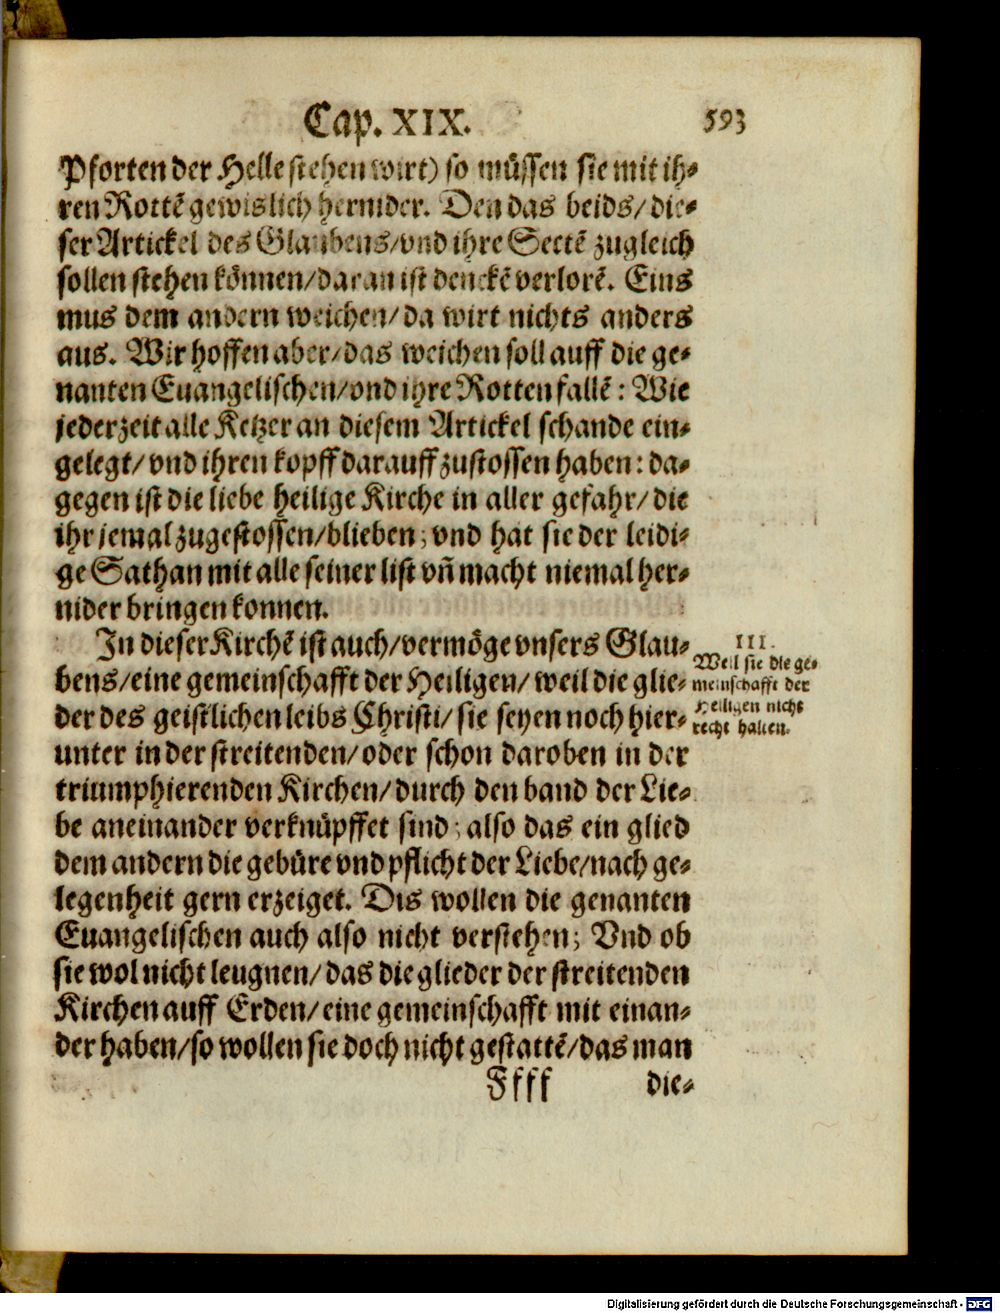 Cap. XIX. 593
Pforten der Helle stehen wirt) so müssen sie mit ih⸗
ren Rottẽ gewislich hernider. Den das beids/ die⸗
ser Artickel des Glaubens/vnd ihre Sectẽ zugleich
sollen stehen können/daran ist denckẽ verlorẽ. Eins
mus dem andern weichen/da wirt nichts anders
aus. Wir hoffen aber/das weichen soll auff die ge⸗
nanten Euangelischen/vnd ihre Rotten fallẽ: Wie
jederzeit alle Ketzer an diesem Artickel schande ein⸗
gelegt/ vnd ihren kopff darauff zustossen haben: da⸗
gegen ist die liebe heilige Kirche in aller gefahr/ die
ihr jemal zugestossen/blieben; vnd hat sie der leidi⸗
ge Sathan mit alle seiner list vñ macht niemal her⸗
nider bringen konnen.
In dieser Kirchẽ ist auch/vermöge vnsers Glau⸗
bens/eine gemeinschafft der Heiligen/ weil die glie⸗
der des geistlichen leibs Christi/ sie seyen noch hier⸗
unter in der streitenden/oder schon daroben in der
triumphierenden Kirchen/durch den band der Lie⸗
be aneinander verknüpffet sind; also das ein glied
dem andern die gebüre vnd pflicht der Liebe/nach ge⸗
legenheit gern erzeiget. Dis wollen die genanten
Euangelischen auch also nicht verstehen; Vnd ob
sie wol nicht leugnen/das die glieder der streitenden
Kirchen auff Erden/eine gemeinschafft mit einan⸗
der haben/so wollen sie doch nicht gestattẽ/das man
Ffff die⸗
III.
Weil sie die ge⸗
meinschafft der
Heiligen nicht
recht halten.
Digitalisierung gefördert durch die Deutsche Forschungsgemeinschaft - DFG